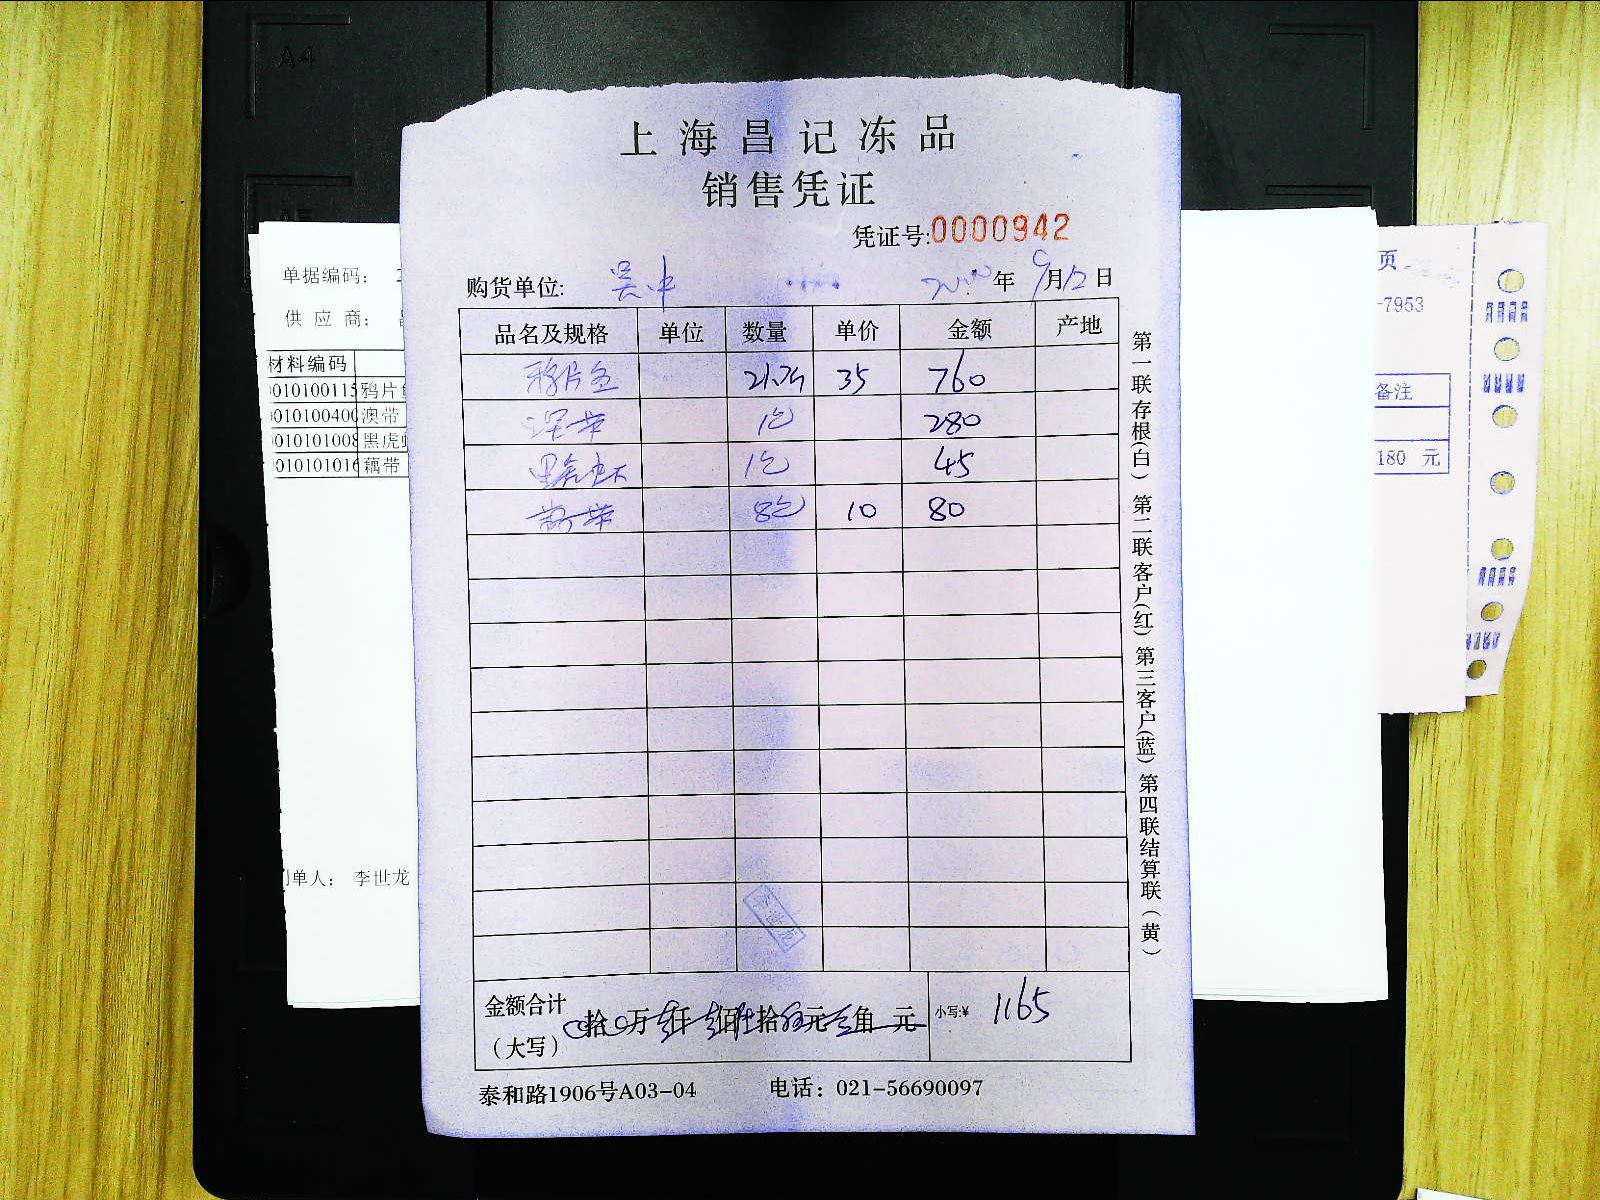 上海昌记冻品
销售凭证
凭证号:0000942
购货单位: 吴中 年 9月12日
品名及规格 单位 数量 单价 金额 产地
鸦片鱼 35 760
澳带 1包 280
黑虎虾 1包 45
藕带 8包 10 80
金额合计
(大写) 拾 万 仟 佰 拾 元 角 元 小写:¥ 1165
泰和路1906号A03-04 电话: 021-56690097
第一联存根(白) 第二联客户(红) 第三客户(蓝) 第四联结算联(黄)
李世龙
单据编码: 2
供应商:
材料编码
010100115 鸦片
010100400 澳带
010101008 黑虎
010101016 藕带
单人: 李世龙
页
-7953
备注
180 元
A4